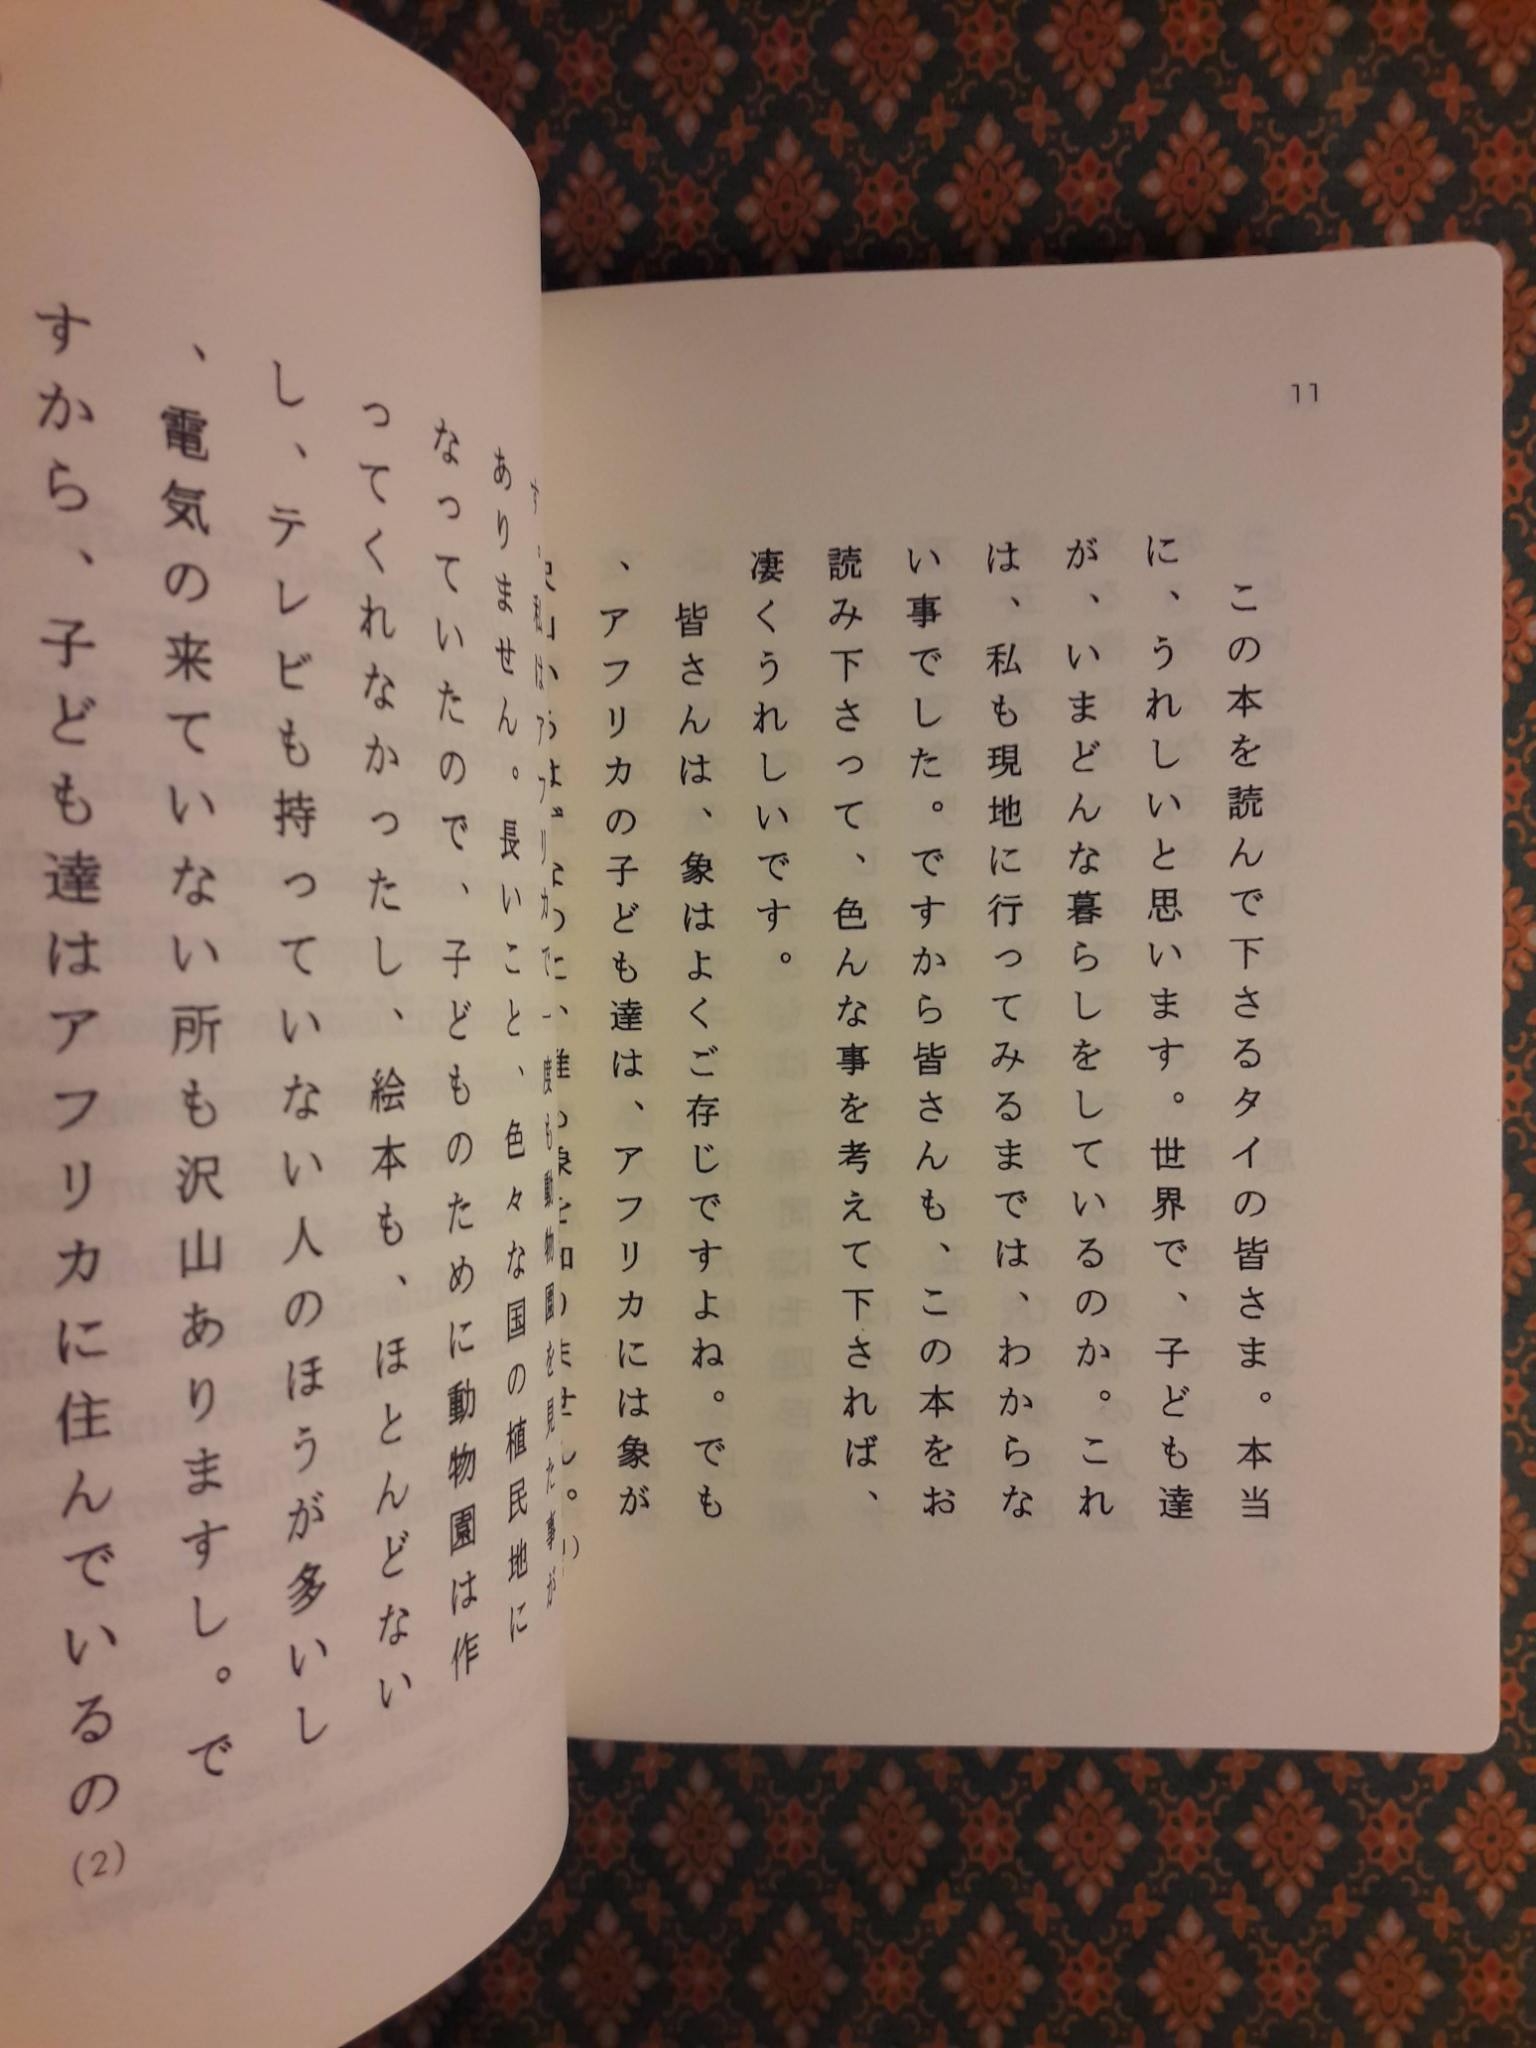 11
この本を読んで下さるタイの皆さま。本当
に、うれしいと思います。世界で、子ども達
が、いまどんな暮らしをしているのか。これ
は、私も現地に行ってみるまでは、わからな
い事でした。ですから皆さんも、この本をお
読み下さって、色んな事を考えて下されば、
凄くうれしいです。
皆さんは、象はよくご存じですよね。でも
、アフリカの子ども達は、アフリカには象が
私はアフリカで一度も動物園を見た事が
ありません。長いこと、色々な国の植民地に
なっていたので、子どものために動物園は作
ってくれなかったし、絵本も、ほとんどない
し、テレビも持っていない人のほうが多いし
、電気の来ていない所も沢山ありますし。で
すから、子ども達はアフリカに住んでいるの
(2)